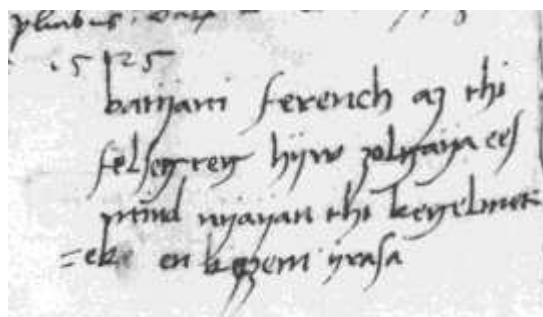 .1525
batijani ferench az thi
felsegteg hijw zolgaija ees
mind nijaijan thi kegelmet
=eke en kezem ijrasa